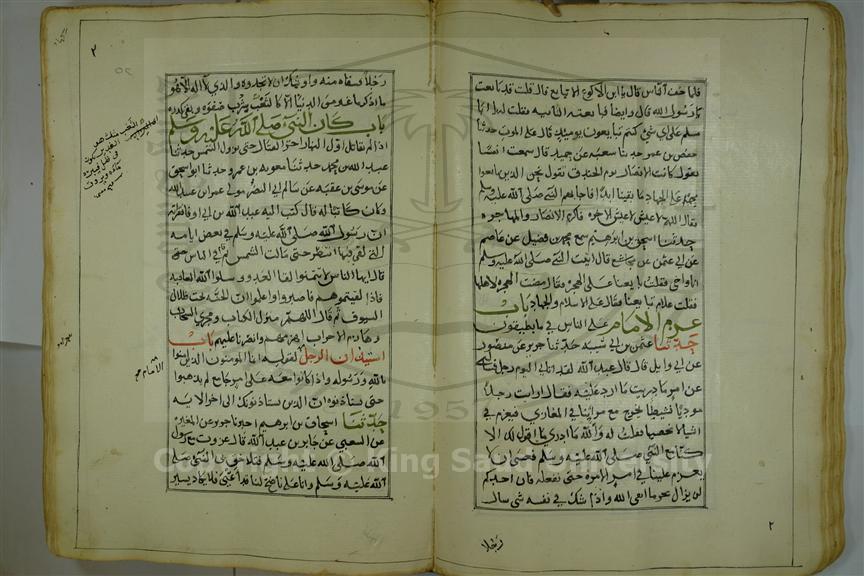 فلما خف الناس قال يا ابن الاكوع الا تبايع قال قلت قد بايعت
يا رسول الله قال وايضا فبايعته الثانيه فقلت له يا ابا
مسلم على اي شي كنتم تبايعون يوميذ قال على الموت حدثنا
حفص بن عمر حدثنا شعبه عن حميد قال سمعت انسا
يقول كانت الانصار يوم الخندق تقول نحن الذين بايعوا
محمدا على الجهاد ما بقينا ابدا فاجابهم النبي صلى الله عليه وسلم
فقال اللهم لا عيش الا عيش الاخره فاكرم الانصار والمهاجره
حدثنا اسحق بن ابرهيم سمع محمد بن فضيل عن عاصم
عن ابي عثمن عن مجاشع قال اتيت النبي صلى الله عليه وسلم
انا واخي فقلت بايعنا على الهجره فقال مضت الهجره لاهلها
فقلت علام تبايعنا فقال على الاسلام والجهاد باب
عزم الامام على الناس في ما يطيقون
حدثنا عثمن بن ابي شيبه حدثنا جرير عن منصور
عن ابي وايل قال قال عبد الله لقد اتاني اليوم رجل فسالني
عن امر ما دريت ما ارد عليه فقال ارايت رجلا
موديا نشيطا يخرج مع امراينا في المغازي فيعزم في
اشيا لا نحصيها فقلت له والله ما ادري ما اقول لك الا
كنا مع النبي صلى الله عليه وسلم فعسى ان لا
يعزم علينا في امر الا مره حتى نفعله فان احدكم
لن يزال بخير ما اتقى الله واذا شك في نفسه شي سال
رجلا
٢
رجلا فشفاه منه واوشك ان لا تجدوه والذي لا اله الا هو
ما اذكر ما غبر من الدنيا الا كالثغب شرب صفوه وبقي كدره
باب كان النبي صلى الله عليه وسلم
اذا لم يقاتل اول النهار اخر القتال حتى تزول الشمس حدثنا
عبد الله بن محمد حدثنا معويه بن عمرو حدثنا ابو اسحق
عن موسى بن عقبه عن سالم ابي النضر مولى عمر بن عبيد الله
وكان كاتبا له قال كتب اليه عبد الله بن ابي اوفى فقراته
ان رسول الله صلى الله عليه وسلم في بعض ايامه
التي لقي فيها انتظر حتى مالت الشمس ثم قام في الناس
قال ايها الناس لا تتمنوا لقا العدو وسلوا الله العافيه
فاذا لقيتموهم فاصبروا واعلموا ان الجنه تحت ظلال
السيوف ثم قال اللهم منزل الكتاب ومجري السحاب
وهازم الاحزاب اهزمهم وانصرنا عليهم باب
استيذان الرجل لقوله انما المومنون الذين امنوا
بالله ورسوله واذا كانوا معه على امر جامع لم يذهبوا
حتى يستاذنوه ان الذين يستاذنونك الى اخر الايه
حدثنا اسحاق بن ابرهيم اخبرنا جرير عن المغيره
عن الشعبي عن جابر بن عبد الله قال غزوت مع رسول
الله صلى الله عليه وسلم فتلاحق بي النبي صلى
الله عليه وسلم وانا على ناضح لنا قد اعيى فلا يكاد يسير
الامام
Copyright © King Saud University
1957